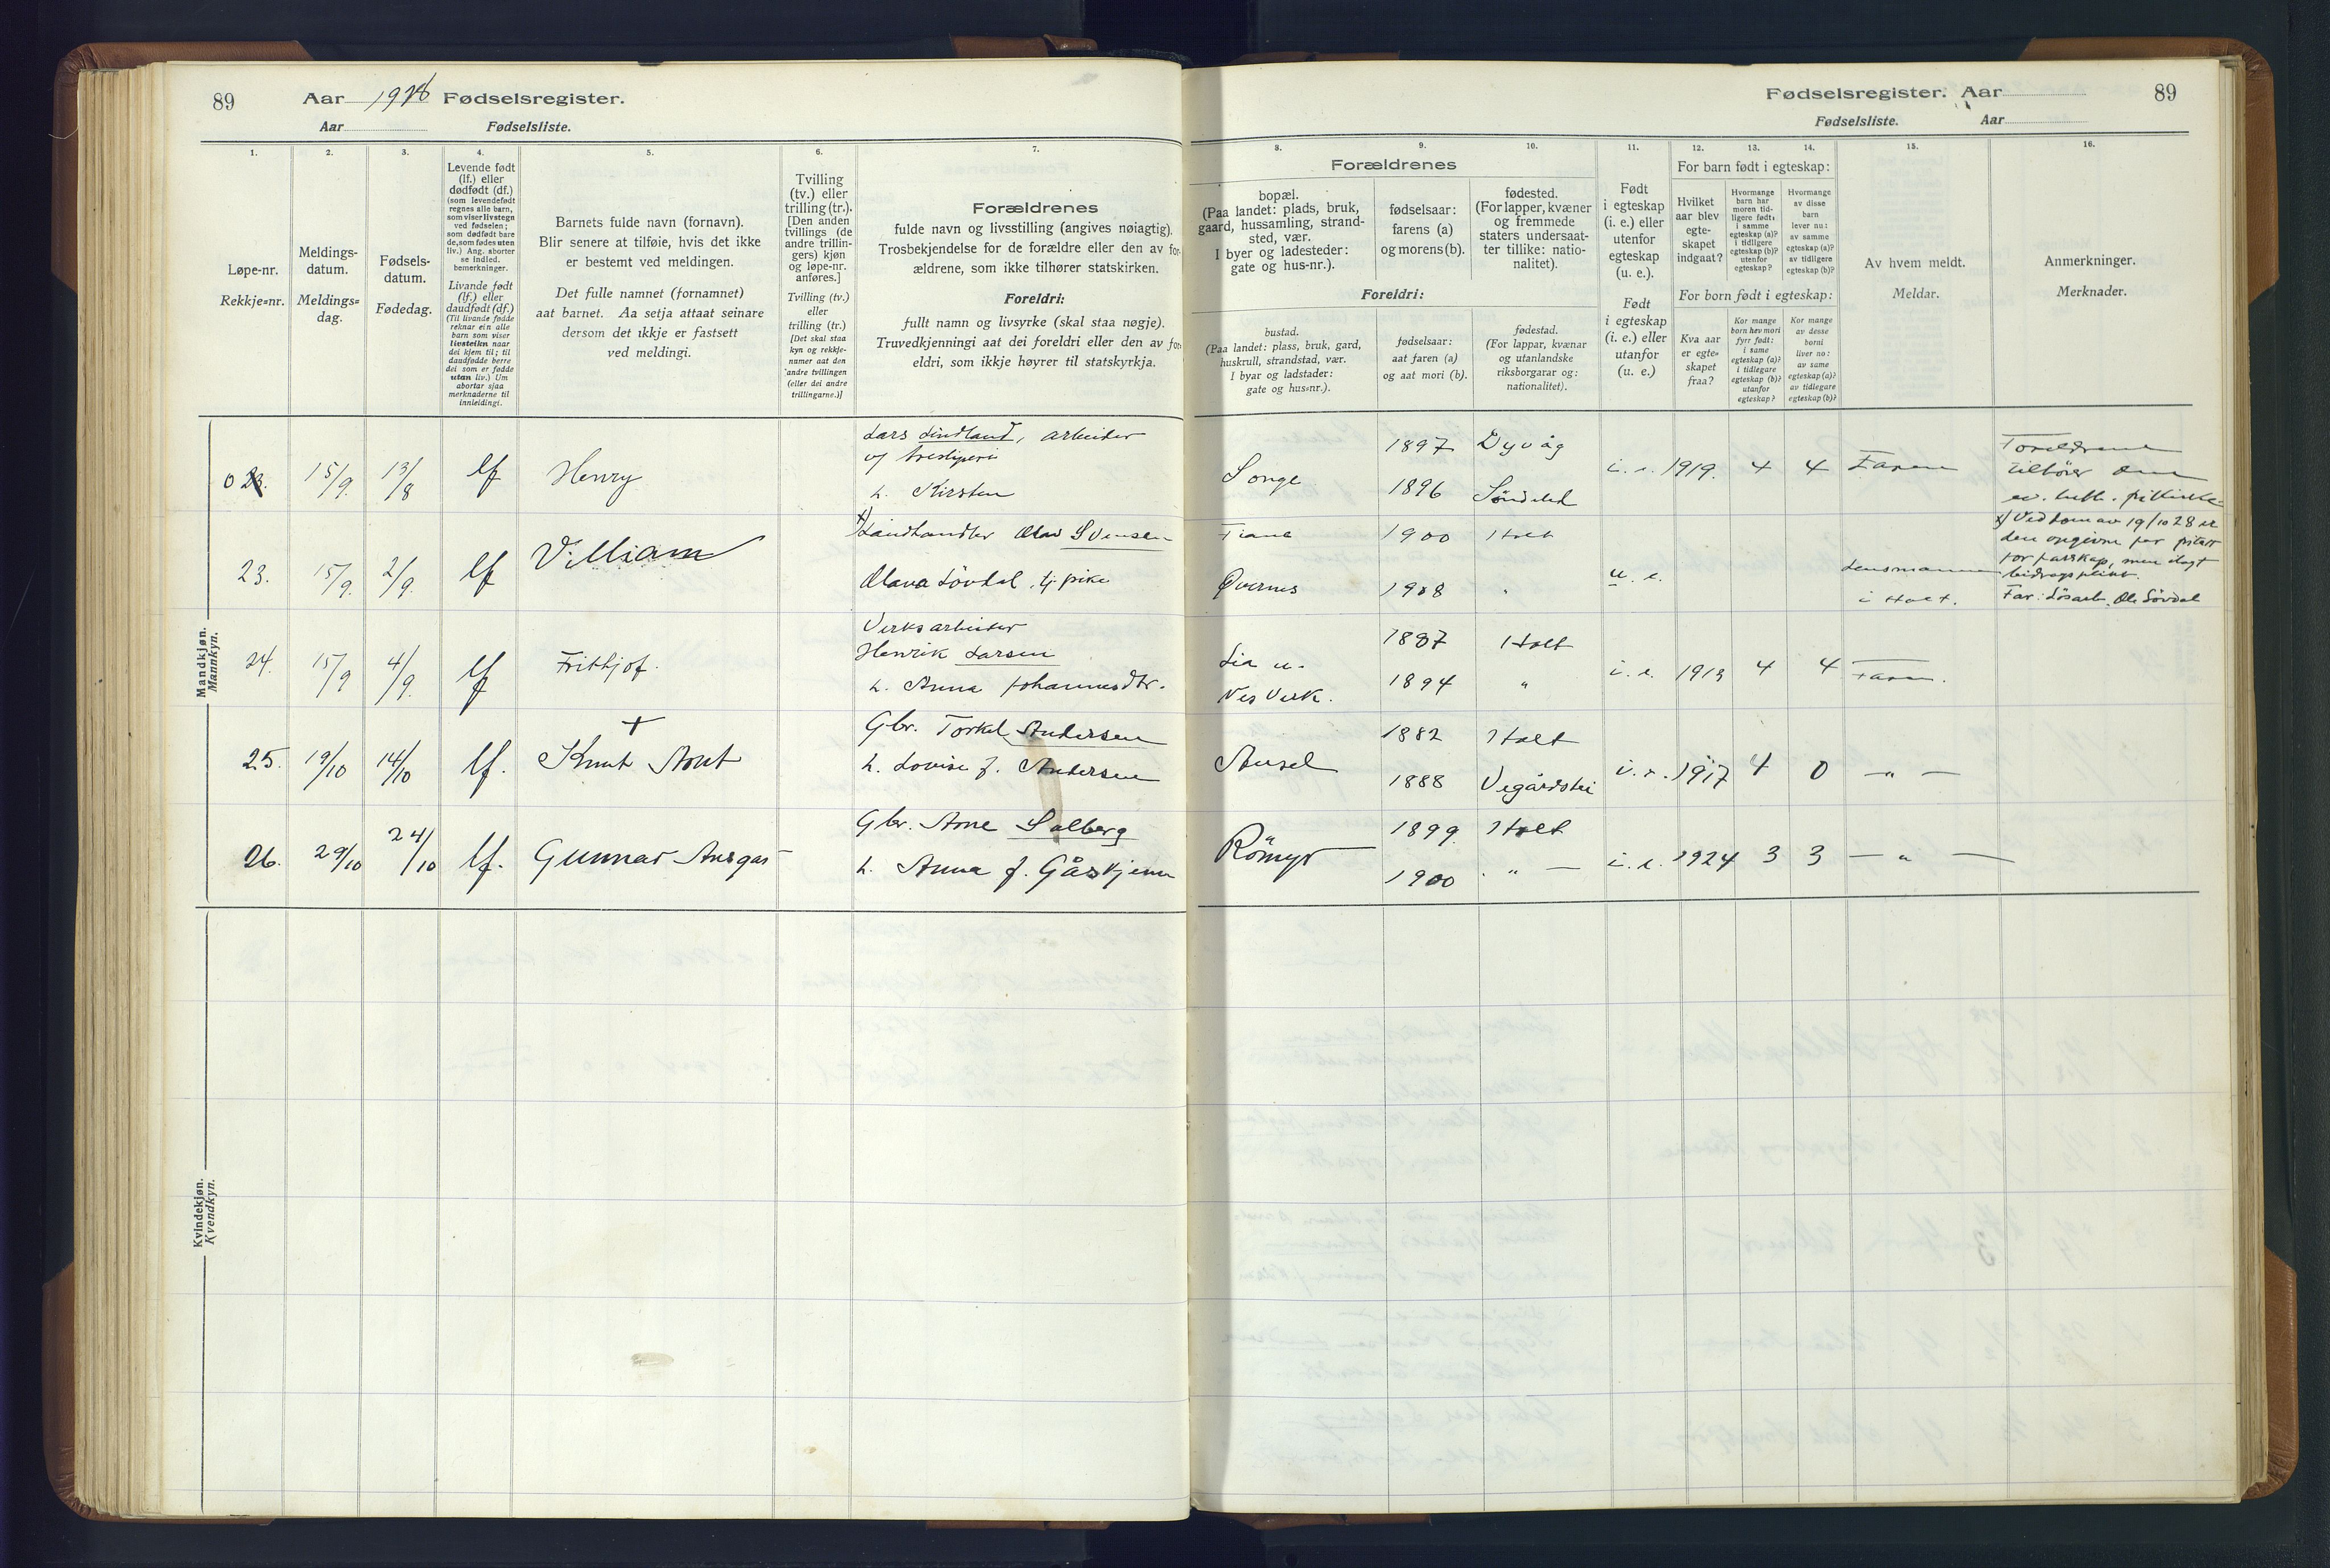 89 Aar 1928 Fødselsregister.
Aar Fødselsliste.
Fødselsregister. Aar 89
Fødselsliste. Aar
1. 2. 3. 4. 5. 6. 7.
Løpe-nr.
Rekkje=nr.
Meldings-
datum.
Meldings=
dag.
Fødsels-
datum.
Fødedag.
Levende født
(lf.) eller
dødfødt (df.)
(som levendefødt
regnes alle barn,
som viser livstegn
ved fødselen;
som dødfødt bare
de, som fødes uten
liv.) Ang. aborter
se indled.
bemerkninger.
Livande født
(lf.) eller
daudfødt (df.)
(Til livande fødde
reknar ein alle
barn som viser
livsteikn naar
dei kjem til; til
daudfødde berre
dei som er fødde
utan liv.) Um
abortar sjaa
merknaderne til
innleidingi.
Barnets fulde navn (fornavn).
Blir senere at tilføie, hvis det ikke
er bestemt ved meldingen.
Det fulle namnet (fornamnet)
aat barnet. Aa setja attaat seinare
dersom det ikkje er fastsett
ved meldingi.
Tvilling
(tv.) eller
trilling (tr.).
[Den anden
tvillings (de
andre trillin-
gers) kjøn
og løpe-nr.
anføres.]
Tvilling (tv.)
eller
trilling (tr.)
[Det skal staa
kyn og rekkje-
numer aat den
andre tvillingen
(eller dei andre
trillingarne.)]
Forældrenes
fulde navn og livsstilling (angives nøiagtig).
Trosbekjendelse for de forældre eller den av for-
ældrene, som ikke tilhører statskirken.
Foreldri:
fullt namn og livsyrke (skal staa nøgje).
Truvedkjenningi aat dei foreldri eller den av for-
eldri, som ikkje høyrer til statskyrkja.
8. 9. 10. 11. 12. 13. 14. 15. 16.
Forældrenes
bopæl.
(Paa landet: plads, bruk,
gaard, hussamling, strand-
sted, vær.
I byer og ladesteder:
gate og hus-nr.).
fødselsaar:
farens (a)
og morens (b).
fødested.
(For lapper, kvæner
og fremmede
staters undersaat-
ter tillike: natio-
nalitet).
Foreldri:
bustad.
(Paa landet: plass, bruk, gard,
huskrull, strandstad, vær.
I byar og ladstader:
gate og hus=nr.).
fødselsaar:
aat faren (a)
og aat mori (b).
fødestad.
(For lappar, kvænar
og utanlandske
riksborgarar og:
nationalitet).
Født
i egteskap
(i. e.) eller
utenfor
egteskap
(u. e.).
Født
i egteskap
(i. e.) eller
utanfor
(u. e.)
For barn født i egteskap:
Hvilket
aar blev
egte-
skapet
indgaat?
Hvormange
barn har
moren tid-
ligere født:
i samme
egteskap (a)?
i tidligere
egteskap (b)?
utenfor
egteskap?
Hvormange
av disse
barn
lever nu:
av samme
egteskap (a)?
av tidligere
egteskap (b)?
For born født i egteskap:
Kva aar
er egte=
skapet
fraa?
Kor mange
born hev mori
fyrr født:
i same
egteskap (a)?
i tidlegare
egteskap (b)?
utanfor
egteskap?
Kor mange
av desse
borni
liver no:
av same
egteskap (a)?
av tidlegare
egteskap (b)?
Av hvem meldt.
Meldar.
Anmerkninger.
Merknader.
Mandkjøn.
Mannkyn.
Lars Lindland, arbeider
v/ tresliperi
0 23. 15/9. 13/8 lf Henry
h. Kirsten
Songe 1897 Dyvåg
1896 Søndeled
i. e. 1919. 4 4 Faren
Foreldrene
tilhører den
ev. luth. frikirke
x) Landhandler Olav Svensen
23. 15/9. 2/9. lf Villiam
Olava Lövdal, tj. pike
Fiane 1900 Holt
Øvernes 1908 "
u. e.
Lensmannen
i Holt.
x) Ved dom av 19/10 28 er
den opgivne far frikjent
for farskap, men ilagt
bidragsplikt.
Far: Løsarb. Ole Lövdal
Verksarbeider
Henrik Larsen
24. 15/9 4/9. lf Frithjof.
h. Anna Johannesdtr.
Lia u.
Nes Verk.
1887 Holt
1894 "
i. e. 1913 4 4 Faren.
Gbr. Torkel Andersen
25. 19/10 14/10 lf. Knut Arnt +
h. Lovise f. Andersen
Ausel 1882 Holt
1888 Vegårdshei
i. e. 1917 4 0 — " —
Gbr. Arne Solberg
26. 29/10 24/10 lf. Gunnar Ansgar
h. Anna f. Gåskjenn
Römyr 1899. Holt
1900 " —
i. e. 1924 3 3 — " —
Kvindekjøn.
Kvendkyn.